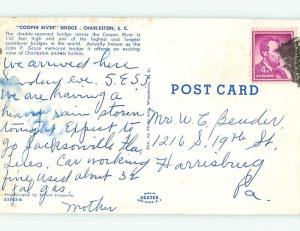 "COOPER RIVER" BRIDGE - CHARLESTON, S. C.
The double-spanned bridge across the Cooper River is
152 feet high and one of the highest and longest
cantilever bridges in the world. Actually known as the
John P. Grace memorial bridge it offers an exciting
view of Charleston and its harbor.
We arrived here
Sunday eve. 5. E.S.T.
We are having a
heavy rain storm
tonight. Expect to
go Jacksonville Fla
Tues. Car working
fine. Used about 32
gal gas.
Mother
POST CARD
Mr W. C. Bender
1216 S. 19th St.
Harrisburg
Pa.
4¢
MADE BY
DEXTER